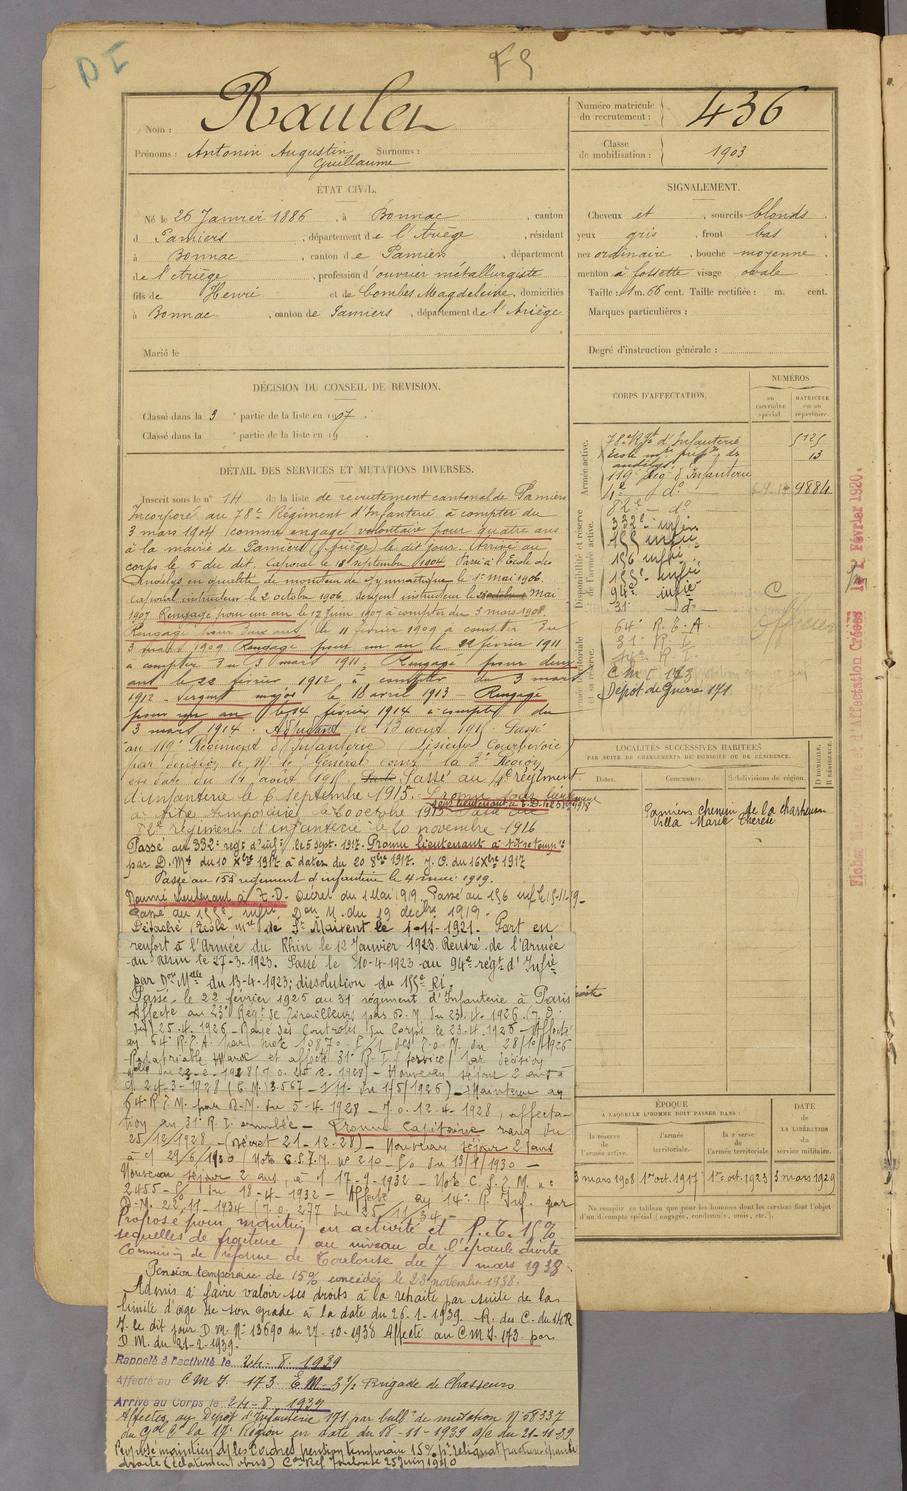 DI
F9
Nom : Raulet
Prénoms : Antonin Augustin Guillaume Surnoms :
Numéro matricule du recrutement : 436
Classe de mobilisation : 1903
ÉTAT CIVIL.
Né le 26 Janvier 1886, à Bonnac, canton
d Pamiers, département de l'Ariège, résidant
à Bonnac, canton de Pamiers, département
de l'Ariège, profession d'ouvrier métallurgiste
fils de Henri et de Combes Magdeleine, domiciliés
à Bonnac, canton de Pamiers, département de l'Ariège
Marié le
SIGNALEMENT.
Cheveux et, sourcils blonds
yeux gris, front bas
nez ordinaire, bouche moyenne
menton à fossette visage ovale
Taille : 1 m. 66 cent. Taille rectifiée : m. cent.
Marques particulières :
Degré d'instruction générale :
DÉCISION DU CONSEIL DE REVISION.
Classé dans la 3e partie de la liste en 1907.
Classé dans la e partie de la liste en 19
DÉTAIL DES SERVICES ET MUTATIONS DIVERSES.
Inscrit sous le n° 14 de la liste de recrutement cantonal de Pamiers
Incorporé au 78e Régiment d'Infanterie à compter du
3 mars 1904 comme engagé volontaire pour quatre ans
à la mairie de Pamiers (Ariège) le dit jour. Arrivé au
corps le 5 du dit. Caporal le 18 septembre 1904 Passé à l'Ecole des
Andelys en qualité de moniteur de gymnastique le 1er Mai 1906.
Caporal instructeur le 2 octobre 1906. Sergent instructeur le Mai
1907 Rengagé pour un an le 12 Juin 1907 à compter du 3 mars 1908.
Rengagé pour deux ans le 11 février 1909 à compter du
3 mars 1909 Rengagé pour un an le 22 février 1911
à compter du 3 mars 1911, Rengagé pour deux
ans le 22 février 1912 à compter du 3 mars
1912 - Sergent major le 18 avril 1913 - Rengagé
pour un an le 14 février 1914 à compter du
3 mars 1914. Adjudant le 13 août 1915 Passé
au 119e Régiment d'Infanterie (Lisieux Courbevoie)
par décision de M. le Général comt la 3e Région
en date du 14 août 1915 Passé au 4e régiment
d'infanterie le 6 septembre 1915. Promu sous lieutenant
à titre temporaire le 20 octobre 1915 Passé au
sous lieutenant à T.D.
82e régiment d'infanterie le 20 novembre 1916
Passé au 332e regt d'inf. le 5 sept. 1917. Promu lieutenant à titre temp.
par D. M. du 10 Xbre 1917 à dater du 20 8bre 1917. J. O. du 16 Xbre 1917
Passé au 155 régiment d'infanterie le 4 1919.
Nommé lieutenant à T.D. Décret du 1 Mai 1919. Passé au 156 inf le 15-11-19-
Passé au 155e infie Don M. du 19 decbre 1919.
Détaché Ecole mre de St Maixent le 1-11-1921. Part en
renfort à l'Armée du Rhin le 12 Janvier 1923. Rentré de l'Armée
du Rhin le 27-3-1923. Passé le 10-4-1923 au 94e régt d'Infie
par Don Mlle du 13-4-1923; dissolution du 155e RI.
Passé le 22 février 1925 au 31 régiment d'Infanterie à Paris
Affecté au 23e Régt de Tirailleurs par D. M. du 23-4-1926 (J.O.
du 25-4-1926 - Rayé des Controles du Corps le 23-4-1926 - Affecté
au 64e R.T.M. par note 10870
Rapatriable Maroc et affecté 31e R.I. (service) par décision
mlle du 22-2-1928 (J.O. 25-2-1928) - Nouveau séjour 2 ans
24-3-1928 - Maintenu au
64 R.T.M. par D.M. du 5-4-1928 - J.O. 12-4-1928, affecta-
tion au 31e R.I. annulée - Promu Capitaine rang du
25/12/1928 - (Décret 21-12-28) - Nouveau séjour 2 ans
à c/ 29/6/1930 (Note C.S.T.M. n° 210
Nouveau séjour 2 ans, à c/ 17-9-1932 - Note C.S.T.M. n°
2455 du 18-4-1932 - Affecté au 14e R. Inf. par
D.M. 22/11-1934 (J.O. 277 du 25/11/34 -
Proposé pour maintien en activité et P.T. 15%
séquelles de fracture au niveau de l'épaule droite
Commission de réforme de Toulouse du 7 mars 1938.
Pension temporaire de 15% concédée le 23 novembre 1938.
Admis à faire valoir ses droits à la retraite par suite de la
limite d'age de son grade à la date du 26-1-1939. R. des C. du 14 R
I. le dit jour D M. N° 13690 du 27-10-1938 Affecté au C M I. 173 par
D M. du 21-2-1939.
Rappelé à l'activité le 24-8-1939
Affecté au C M I. 173 EM - 3e/2 Brigade de Chasseurs
Arrivé au Corps le 24-8-1939
Affecté au Dépôt d'Infanterie 171 par bulln de mutation N° 58337
du Gal Ct la 17e Région en date du 18-11-1939 a/c du 21-11-39
Proposé maintien ds les Cadres pension temporaire 15%
droite (éclatement obus) Con Ref Toulouse 25 Juin 1940
CORPS D'AFFECTATION.
NUMÉROS
au contrôle spécial.
matricule ou au répertoire.
Armée active.
78e Rgt d'Infanterie 5125
Ecole mre prépre des Andelys 13
119e Reg d'Infanterie
4e do 9884
Disponibilité et réserve de l'armée active.
82e - do
332e infie
155 infie
156 infie
155e infie
94e infie C
31e do
Armée territoriale et sa réserve.
64e R.T.M. Officier
31e R.I.
14e R.I.
C M I 173
Dépôt de Guerre 171
LOCALITÉS SUCCESSIVES HABITÉES
PAR SUITE DE CHANGEMENTS DE DOMICILE OU DE RÉSIDENCE.
Dates. Communes. Subdivisions de région. D domicile. R résidence.
Pamiers chemin de la chartreuse
Villa Marie Thérèse
droite
ÉPOQUE
À LAQUELLE L'HOMME DOIT PASSER DANS :
la réserve de l'armée active.
l'armée territoriale.
la réserve de l'armée territoriale.
DATE DE LA LIBÉRATION du service militaire.
3 mars 1908
1er oct. 1917
1er oct. 1923
3 mars 1929
Ne remplir ce tableau que pour les hommes dont les services font l'objet
d'un décompte spécial (engagés, condamnés, omis, etc.).
Fiches et d'Affectation Créées le 1er Février 1920.